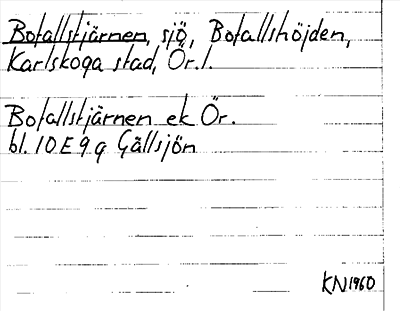 Bofallstjärnen, sjö, Bofallshöjden,
Karlskoga stad, Ör.l.
Bofallstjärnen ek Ör.
bl. 10E9g Gällsjön
KN1960